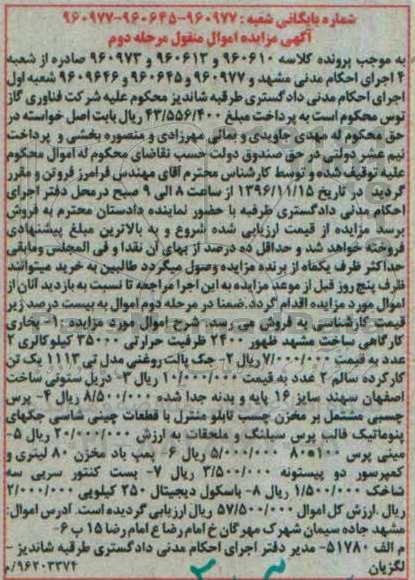 شماره بایگانی شعبه : ۹۶۰۹۷۷-۹۶۰۶۴۵-۹۶۰۹۷۷
آگهی مزایده اموال منقول مرحله دوم
به موجب پرونده کلاسه ۹۶۰۶۱۰ و ۹۶۰۶۱۳ و ۹۶۰۹۷۳ صادره از شعبه
۴ اجرای احکام مدنی مشهد و ۹۶۰۹۷۷ و ۹۶۰۶۴۵ و ۹۶۰۹۶۴۶ شعبه اول
اجرای احکام مدنی دادگستری طرقبه شاندیز محکوم علیه شرکت فناوری گاز
توس محکوم است به پرداخت مبلغ ۴۳/۵۵۶/۴۰۰ ریال بابت اصل خواسته در
حق محکوم له مهدی جاویدی و یمانی مهرزادی و منصوره بخشی و پرداخت
نیم عشر دولتی در حق صندوق دولت حسب تقاضای محکوم له اموال محکوم
علیه توقیف شده و توسط کارشناس محترم آقای مهندس فرامرز فروتن و مقرر
گردید در تاریخ ۱۳۹۶/۱۱/۱۵ از ساعت ۸ الی ۹ صبح درمحل دفتر اجرای
احکام مدنی دادگستری طرقبه با حضور نماینده دادستان محترم به فروش
برسد مزایده از قیمت ارزیابی شده شروع و به بالاترین مبلغ پیشنهادی
فروخته خواهد شد و حداقل ده درصد از بهای آن نقدا و فی المجلس ومابقی
حداکثر ظرف یکماه از برنده مزایده وصول میگردد طالبین به خرید میتوانند
ظرف پنج روز قبل از موعد مزایده به این اجرا مراجعه تا نسبت به بازدید آنان از
اموال مورد مزایده اقدام گردد.ضمنا در مرحله دوم اموال به بیست درصد زیر
قیمت کارشناسی به فروش می رسد. شرح اموال مورد مزایده ۱- بخاری
کارگاهی ساخت مشهد ظهور ۲۴۰۰ ظرفیت حرارتی ۳۵۰۰۰ کیلوکالری ۲
عدد به قیمت ۷/۰۰۰/۰۰۰ ریال ۲- جک پالت روغنی مدل تی ۱۱۱۳ یک تن
کارکرده سالم ۲ عدد به قیمت ۱۰/۰۰۰/۰۰۰ ریال ۳- دریل ستونی ساخت
اصفهان سهند سایز ۱۶ پایه و بدنه جدا شده ۸/۵۰۰/۰۰۰ ریال ۴- پرس
چسبی مشتمل بر مخزن چسب تابلو منترل با قطعات چینی شاسی جکهای
پنوماتیک قالب پرس سیلنگ و ملحقات به ارزش ۲۰/۰۰۰/۰۰۰ ریال ۵-
مینی پرس ۸۰*۱۰۰ ۵/۰۰۰/۰۰۰ ریال ۶- پمپ باد مخزن ۸۰ لیتری و
کمپرسور دو پیستونه ۳/۵۰۰/۰۰۰ ریال ۷- بست کنتور سربی سه
شاخک ۱/۵۰۰/۰۰۰ ریال ۸- باسکول دیجیتال ۲۵۰ کیلویی ۲/۰۰۰/۰۰۰
ریال .ارزش کل اموال ۵۷/۵۰۰/۰۰۰ ریال ارزیابی گردیده است. آدرس اموال:
مشهد جاده سیمان شهرک مهرگان خ امام رضا ع امام رضا ۱۵ پ ۶-
م الف ۵۱۷۸۰- مدیر دفتر اجرای احکام مدنی دادگستری طرقبه شاندیز -
لگزیان ۹۶۲۰۳۳۷۴/م